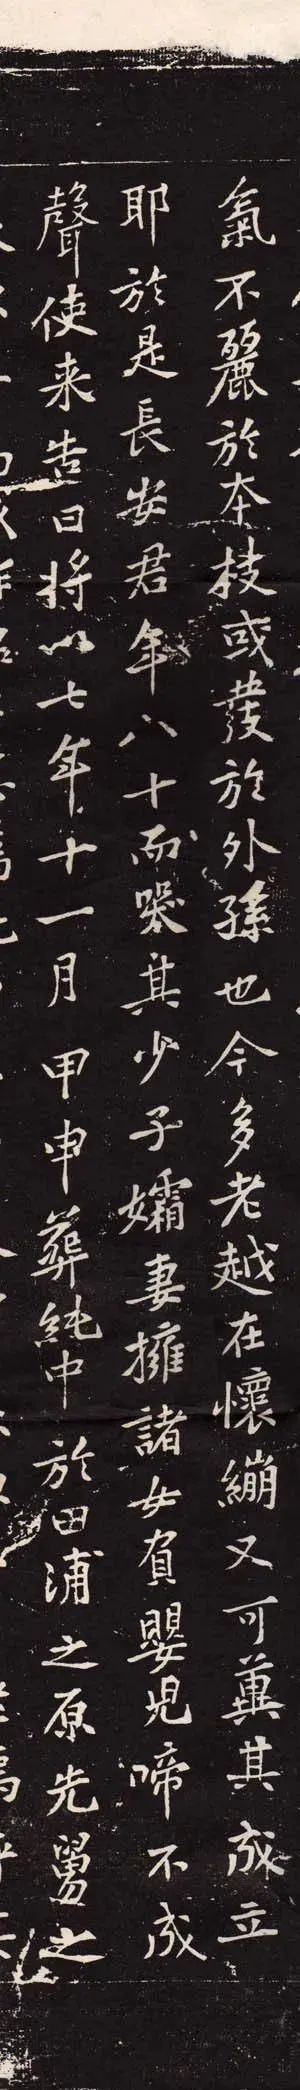 氣不麗於本枝或發於外孫也今多老越在懷繃又可冀其成立
耶於是長安君年八十而哭其少子孀妻擁諸女負嬰兒啼不成
聲使来告曰將以七年十一月甲申葬純中於田浦之原先舅之